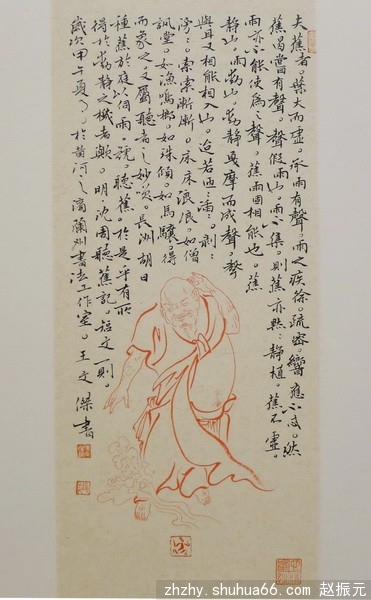 夫蕉者。葉大而虛。承雨有聲。雨之疾徐。疏密。響應不忒。然
蕉曷嘗有聲。聲假雨也。雨不集。則蕉亦默々靜植。蕉不虛。
雨亦不能使為之聲。蕉雨固相能也。蕉
靜也。雨動也。動靜戛摩而成聲。聲
與耳又相能相入也。迨若匝々。剥々
滂々。索索淅淅。床床浪浪。如僧
諷堂。如漁鳴榔。如珠傾。如馬驤。得
而象之。又屬聽者之妙也。長洲胡日
種蕉於庭以伺雨。號聽蕉。於是乎有所
得於動靜之機者歟。明沈周聽蕉記。短文一則。
歲次甲午夏月。於黄河之濱蘭州書法工作室。王文傑書
zhzhy.shuhua66.com 赵振元